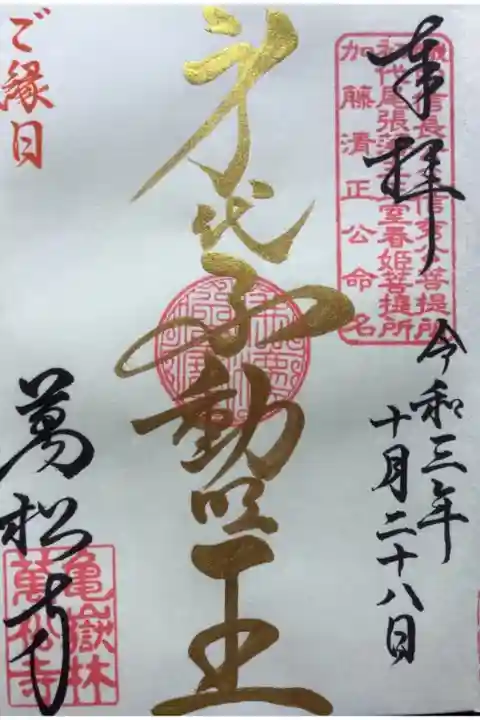 奉拝
信長
信秀公菩提所
初代尾張藩
室春姫菩提所
加藤清正公命名
令和三年
十月二十八日
身代不動明王
ご縁日
萬松寺
亀嶽林
萬松寺